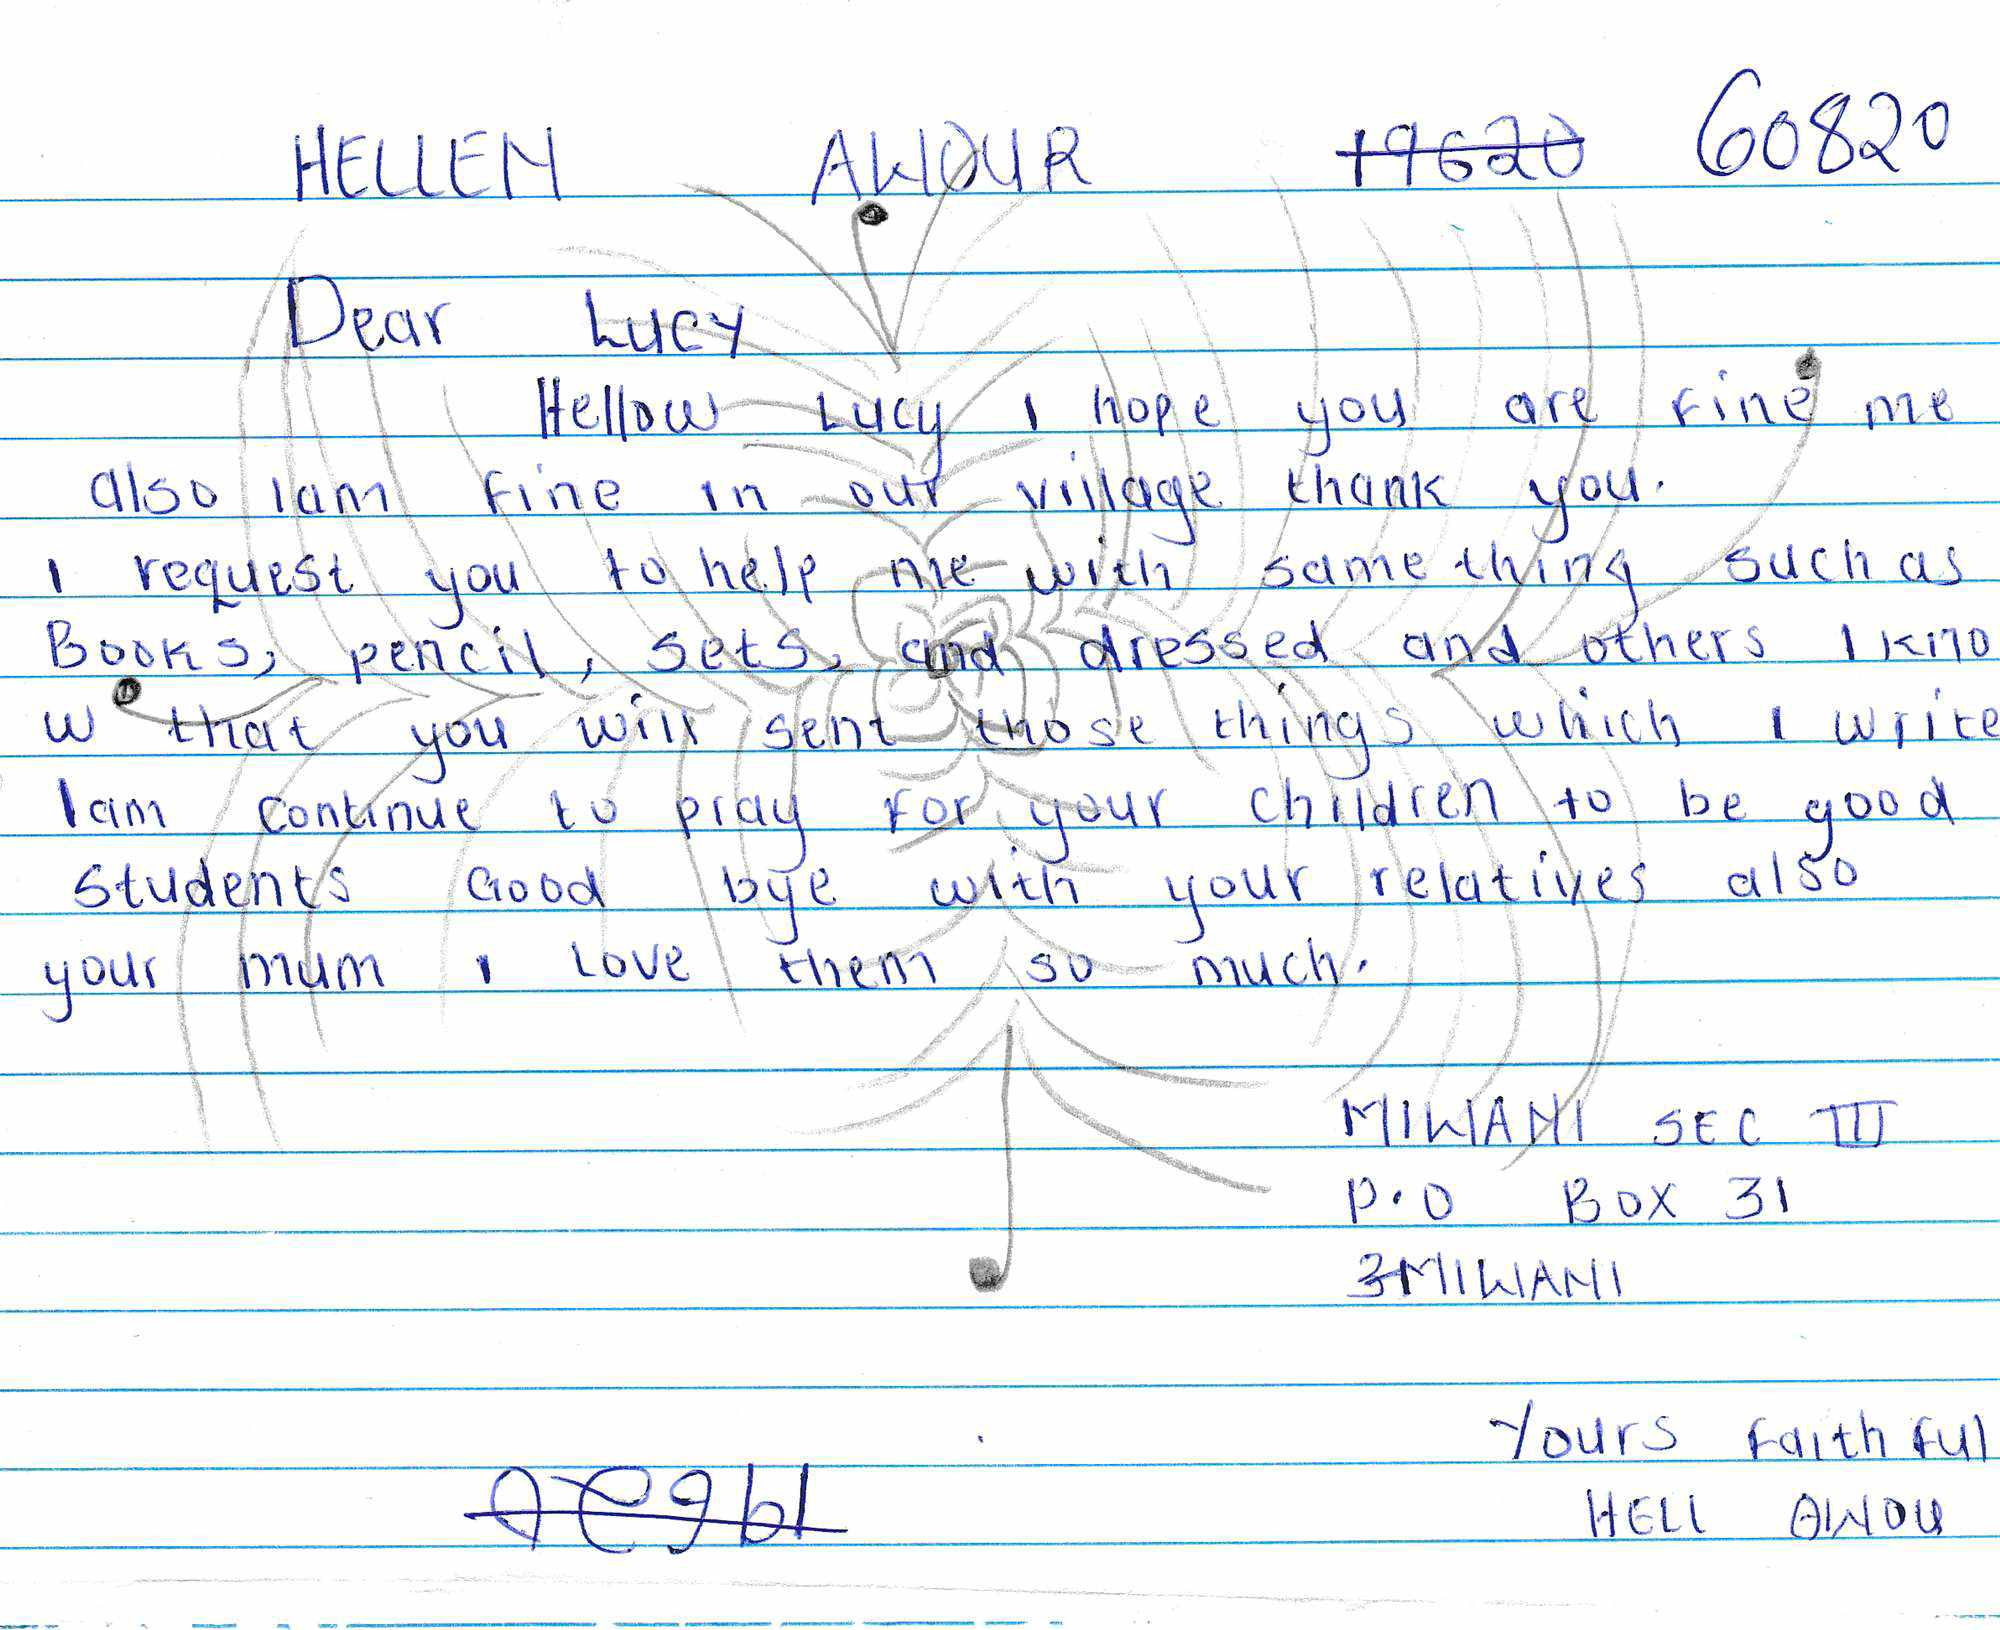 HELLEN AWOUR 19620 60820
Dear Lucy
Hellow Lucy I hope you are fine me
also Iam fine in our village thank you.
I request you to help me with same thing such as
Books, pencil, sets, and dressed and others I kno
w that you will sent those things which I write
Iam continue to pray for your children to be good
students Good bye with your relatives also
your mum I Love them so much.
MIWANI SEC III
P.O BOX 31
3MIWANI
Yours Faithful
HELL AWOU
19620